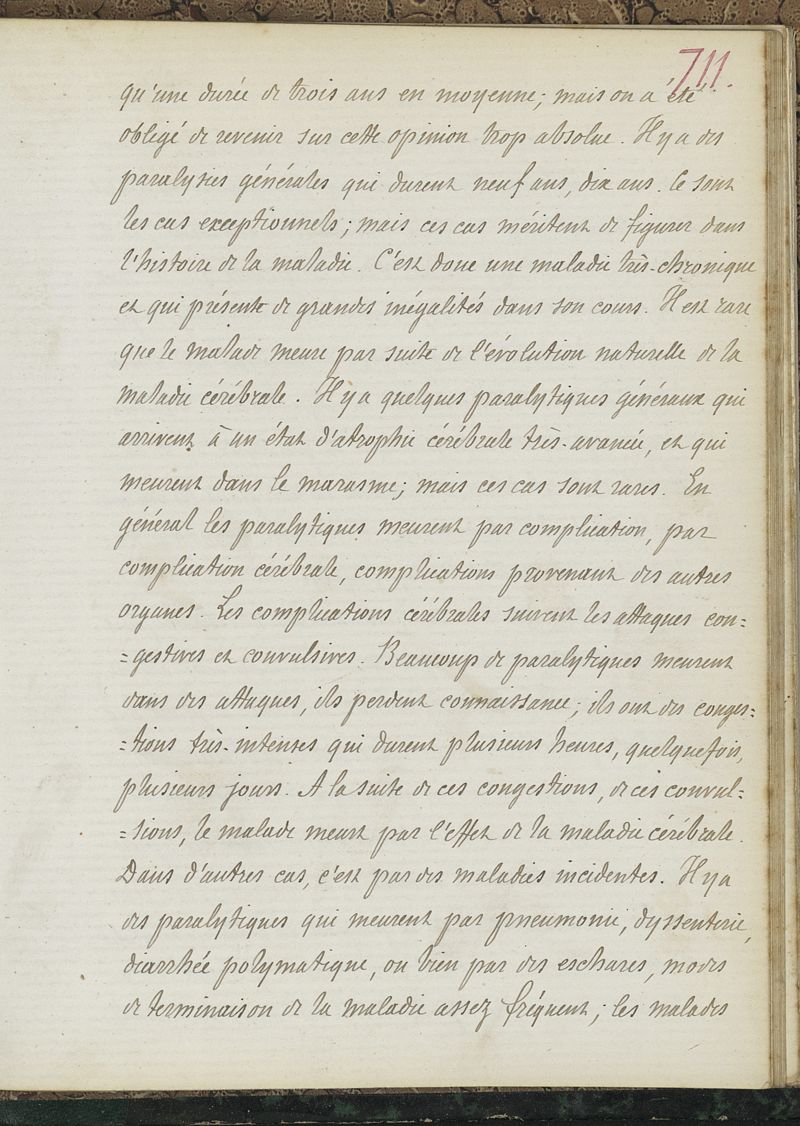 711.
qu'une durée de trois ans en moyenne; mais on a été
obligé de revenir sur cette opinion trop absolue. Il y a des
paralysies générales qui durent neuf ans, dix ans. Ce sont
les cas exceptionnels; mais ces cas méritent de figurer dans
l'histoire de la maladie. C'est donc une maladie très-chronique
et qui présente de grandes inégalités dans son cours. Il est rare
que le malade meure par suite de l'évolution naturelle de la
maladie cérébrale. Il y a quelques paralytiques généraux qui
arrivent à un état d'atrophie cérébrale très-avancée, et qui
meurent dans le marasme; mais ces cas sont rares. En
général les paralytiques meurent par complication, par
complication cérébrale, complications provenant des autres
organes. Les complications cérébrales suivent les attaques con=
=gestives et convulsives. Beaucoup de paralytiques meurent
dans des attaques, ils perdent connaissance; ils ont des conges=
=tions très-intenses qui durent plusieurs heures, quelquefois,
plusieurs jours. A la suite de ces congestions, de ces convul=
=sions, le malade meurt par l'effet de la maladie cérébrale.
Dans d'autres cas, c'est par des maladies incidentes. Il y a
des paralytiques qui meurent par pneumonie, dyssenterie,
diarrhée polymatique, ou bien par des eschares, modes
de terminaison de la maladie assez fréquent; les malades